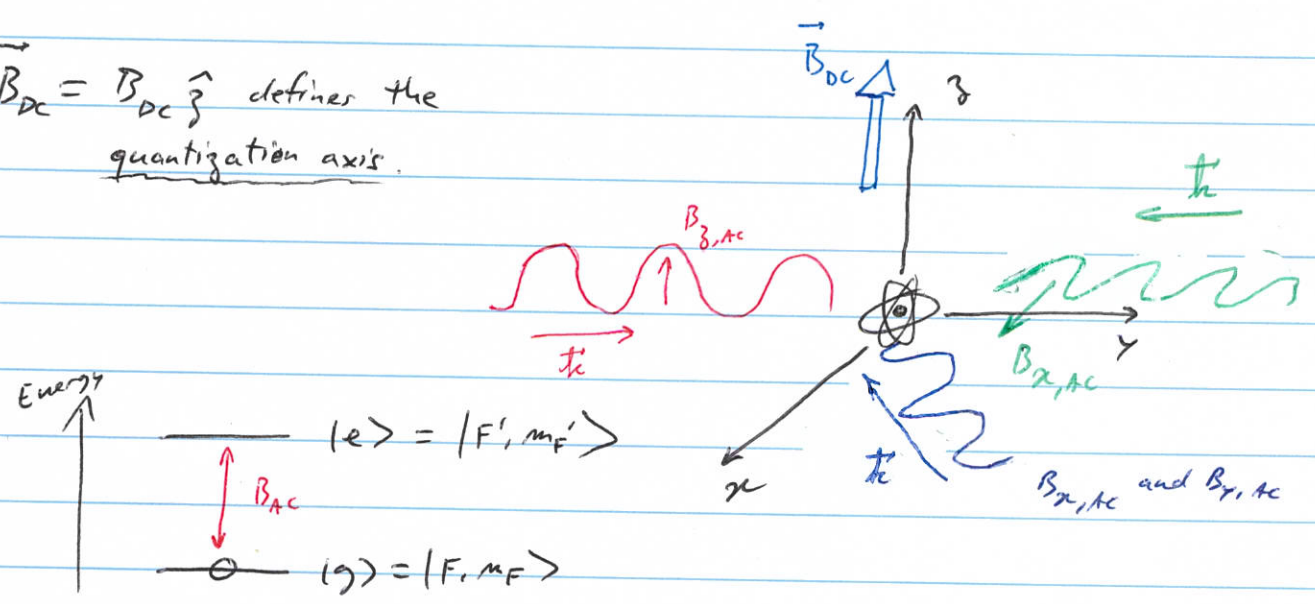 B⃗_DC = B_DC ẑ defines the
quantization axis.
B⃗_DC
z
k⃗
B_z,AC
k⃗
y
B_x,AC
x
k⃗
B_x,AC and B_y,AC
Energy
|e> = |F', m_F'>
B_AC
|g> = |F, m_F>